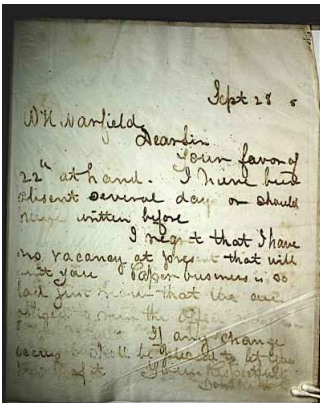 Sept 28
Warfield
Dear Sir
Your favor of
22" at hand. I have been
absent several day or should
have written before
I regret that I have
no vacancy at present that will
suit you Paper business is so
bad just now that we are
obliged
If any change
occurs I shall be pleased to let you
know of it